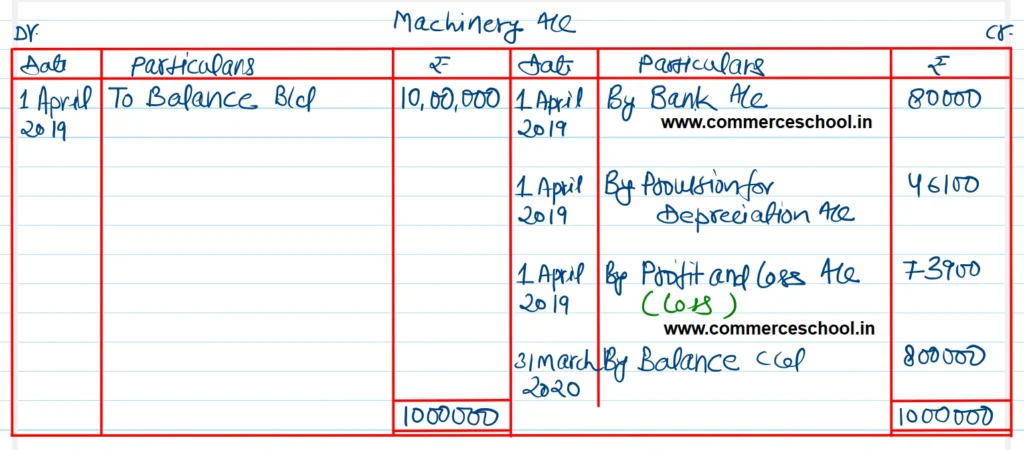 Machinery A/c
Dr.
Cr.
Date Particulars ₹ Date Particulars ₹
1 April To Balance B/d 10,00,000 1 April By Bank A/c 80000
2019 www.commerceschool.in
2019
1 April By Provision for 46100
2019 Depreciation A/c
1 April By Profit and Loss A/c 73900
2019 (Loss)
www.commerceschool.in
31 March By Balance c/d 800000
2020
1000000 1000000